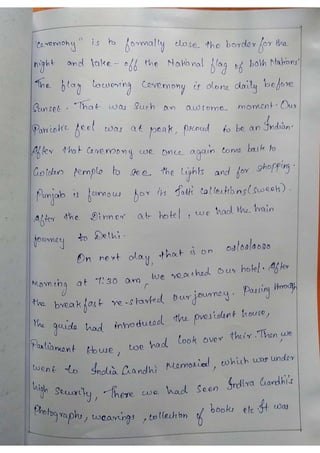 Ceremony" is to formally close the border for the
night and take-off the National flag of both Nations
The flag lowering ceremony is done daily before
Sunset. That was such an awsome moment. Our
Patriotic feel was at peak, proud to be an Indian.
After that ceremony we once again come back to
Golden temple to see the lights and for shopping.
Punjab is famous for its Jutti collections (sweets).
After the Dinner at hotel, we had the train
journey to Delhi.
On next day, that is on 03/03/2020
morning at 7:30 am, we reached our hotel. After
the breakfast re-started our journey. Passing through
the guide had introduced the president house,
Parliament House, we had look over their. Then, we
went to India Gandhi Memorial, which was under
high security, There we had seen Indira Gandhi's
Photographs, wearings, collection of books etc It was